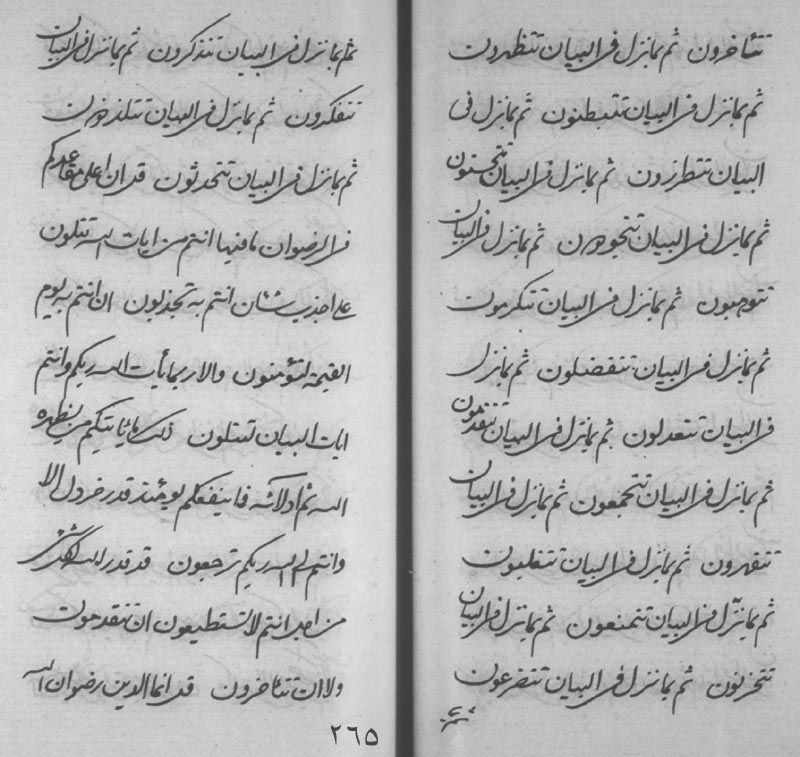 تتاخرون ثم بما نزل فی البیان تتظهرون
ثم بما نزل فی البیان تتبطنون ثم بما نزل فی
البیان تتطرزون ثم بما نزل فی البیان
ثم بما نزل فی البیان ثم بما نزل فی البیان
تتوهبون ثم بما نزل فی البیان تتکرمون
ثم بما نزل فی البیان تتفضلون ثم بما نزل
فی البیان تتعدلون ثم بما نزل فی البیان تتقدمون
ثم بما نزل فی البیان تتجمعون ثم بما نزل فی البیان
تتقهرون ثم بما نزل فی البیان تتغلبون
ثم بما نزل فی البیان تتمنعون ثم بما نزل فی البیان
تتحزنون ثم بما نزل فی البیان تتضرعون
ثم بما نزل فی البیان تتذکرون ثم بما نزل فی البیان
تتفکرون ثم بما نزل فی البیان تتلذذون
ثم بما نزل فی البیان تتحدثون قد ان اعلی مقاعدکم
فی الرضوان ما فیها انتم من ایات الله تتلون
علی اجذب شان انتم به تجذبون ان انتم به یوم
القیمة لتؤمنون والا ربما بأیات الله ربکم وانتم
ایات البیان لتتلون ذلک ما یاتیکم من یظهره
الله ثم ادلائه فلا ینفعکم یومئذ قدر خردل الا
وانتم الی الله ربکم ترجعون قد قدر الله لکلشئ
من اجل انتم لا تستطیعون ان تتقدمون
ولا ان تتاخرون قل انما الدین رضوان الله
٢٦٥